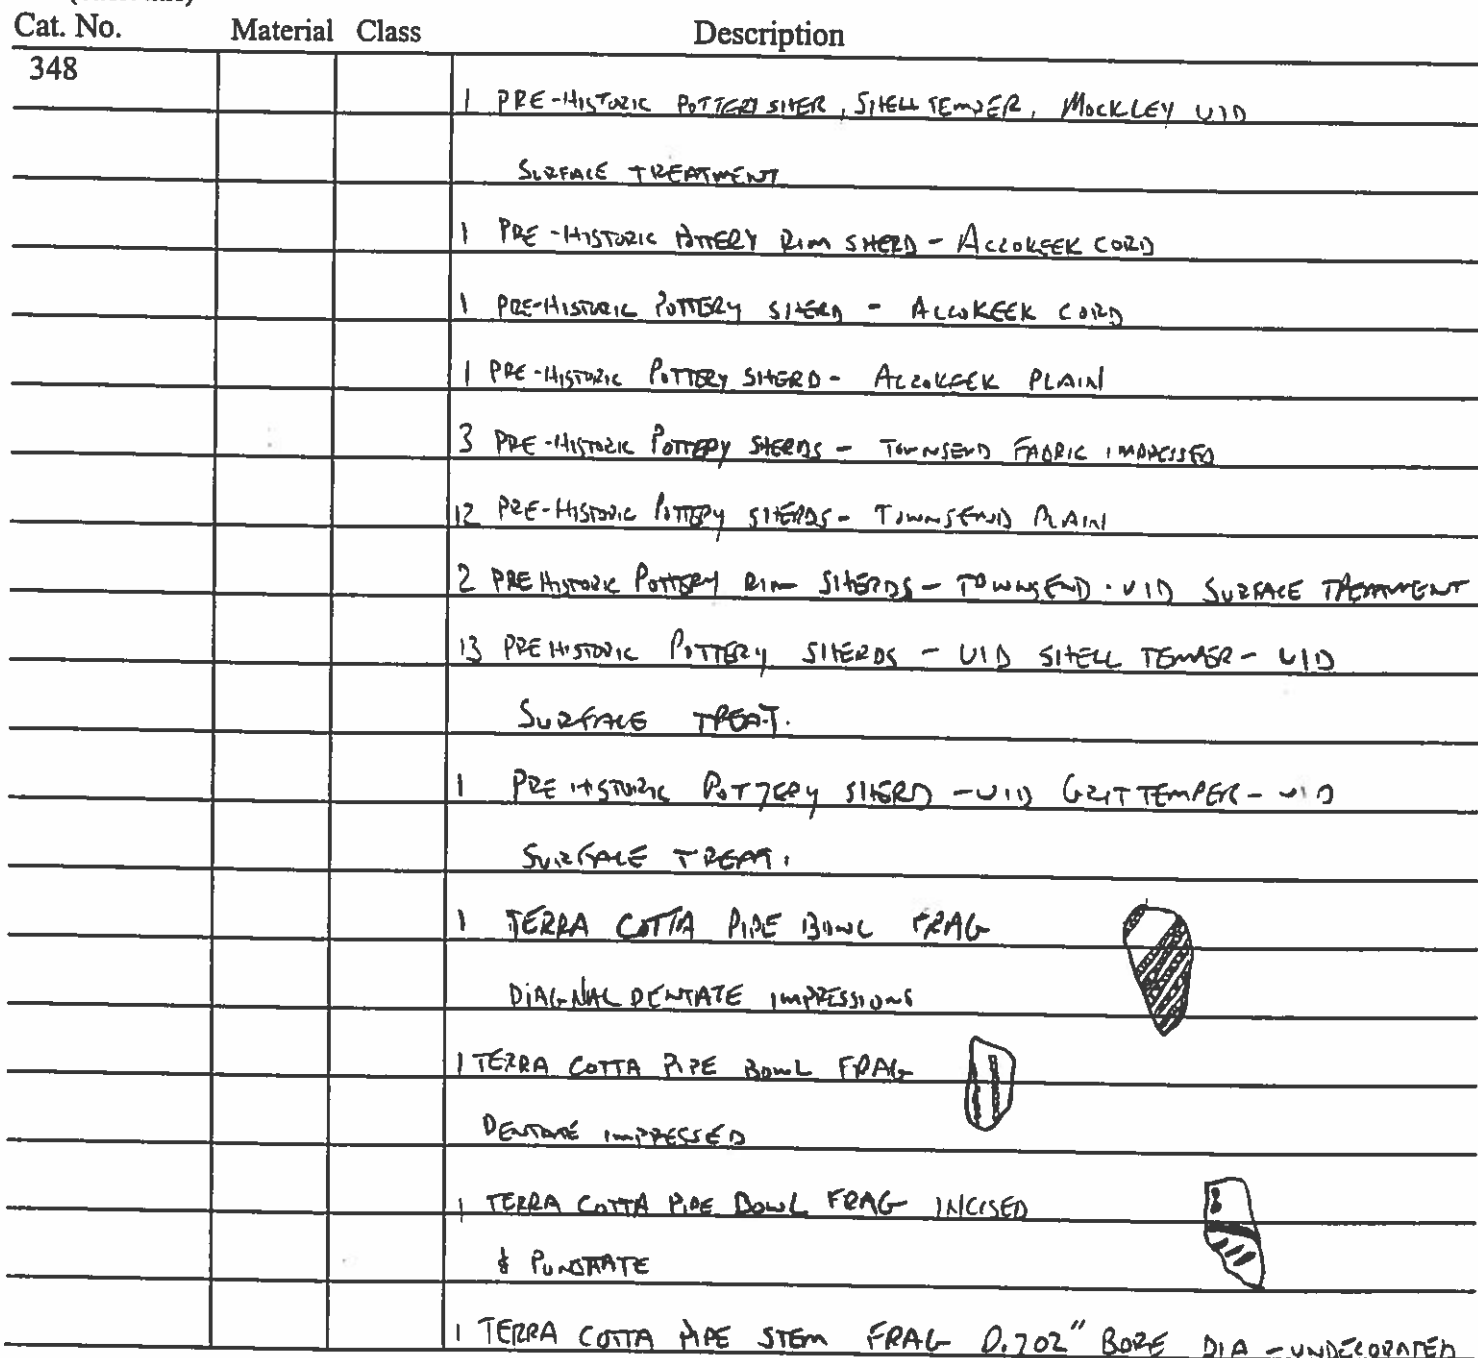 Cat. No. Material Class Description
348
1 PRE-HISTORIC POTTERY SHER, SHELL TEMPER, MOCKLEY UID
SURFACE TREATMENT
1 PRE-HISTORIC POTTERY RIM SHERD - ACCOKEEK CORD
1 PRE-HISTORIC POTTERY SHERD - ACCOKEEK CORD
1 PRE-HISTORIC POTTERY SHERD - ACCOKEEK PLAIN
3 PRE-HISTORIC POTTERY SHERDS - TOWNSEND FABRIC IMPRESSED
12 PRE-HISTORIC POTTERY SHERDS - TOWNSEND PLAIN
2 PREHISTORIC POTTERY RIM SHERDS - TOWNSEND - UID SURFACE TREATMENT
13 PREHISTORIC POTTERY SHERDS - UID SHELL TEMPER - UID
SURFACE TREAT.
1 PREHISTORIC POTTERY SHERD - UID GRIT TEMPER - UID
SURFACE TREAT.
1 TERRA COTTA PIPE BOWL FRAG
DIAGNAL DENTATE IMPRESSIONS
1 TERRA COTTA PIPE BOWL FRAG
DENTATE IMPRESSED
1 TERRA COTTA PIPE BOWL FRAG INCISED
& PUNCTATE
1 TERRA COTTA PIPE STEM FRAG 0.702" BORE DIA - UNDECORATED